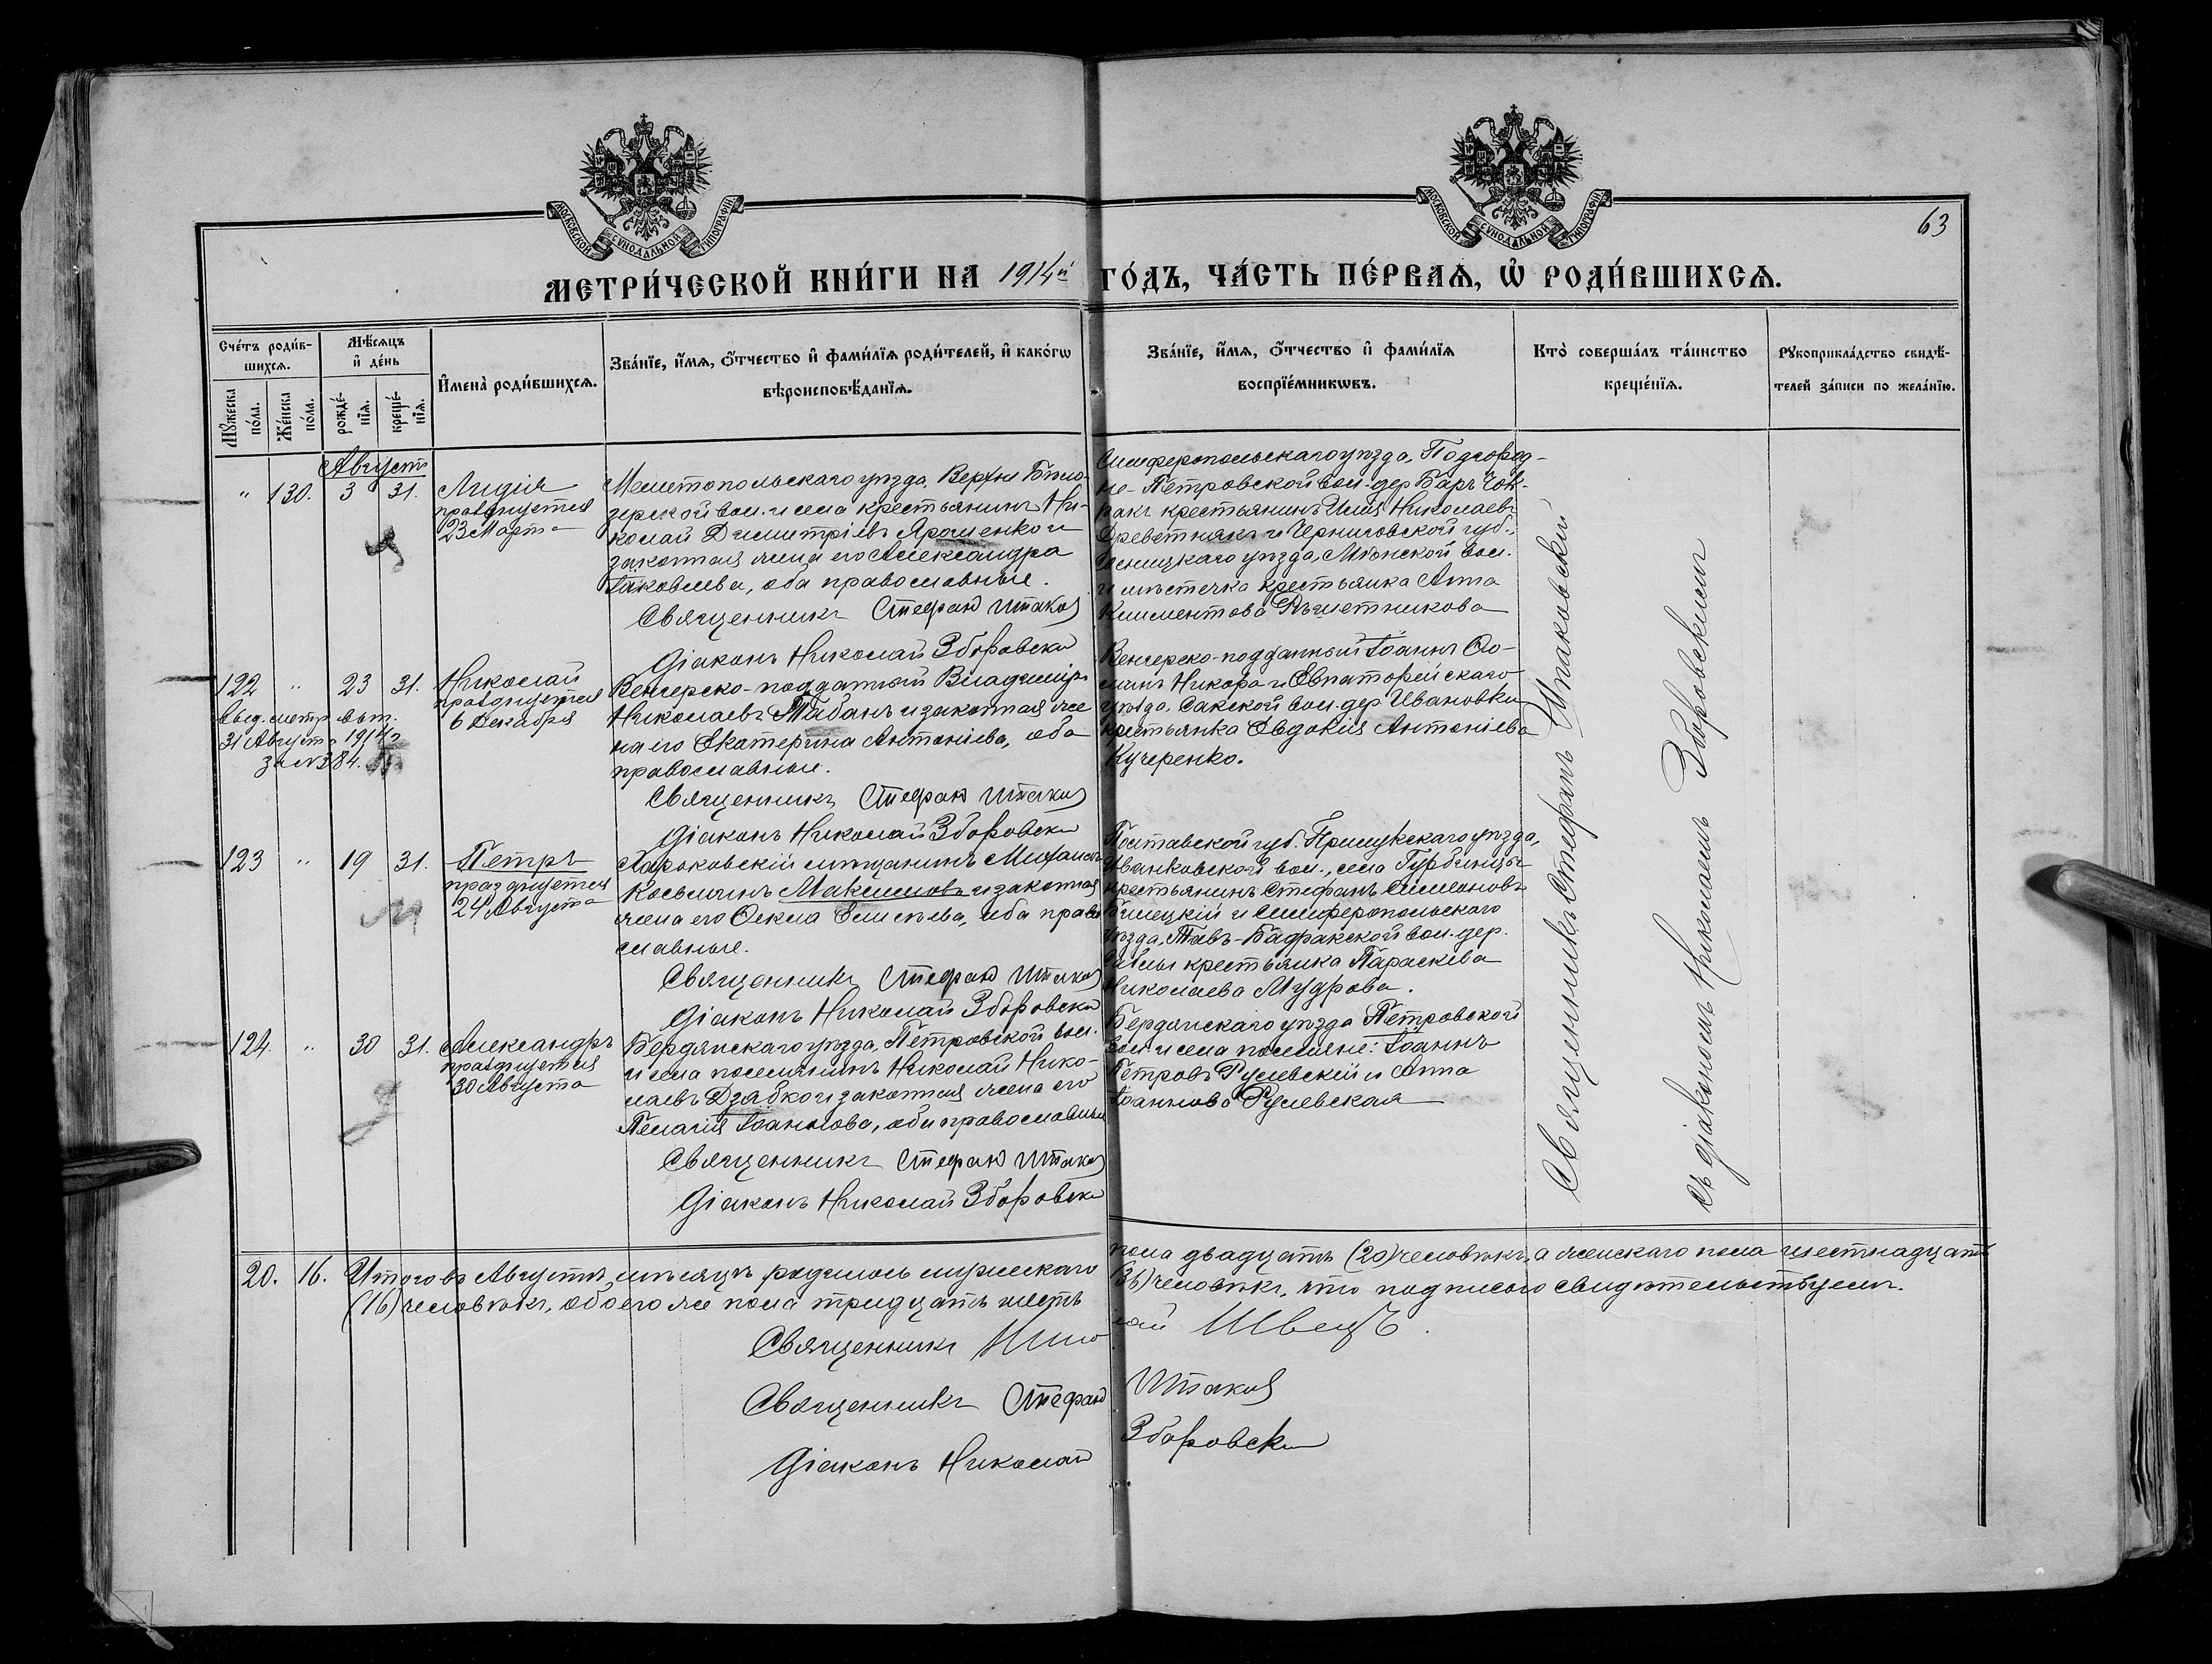 63
МОСКОВСКОЙ СѴНОДАЛЬНОЙ ТИПОГРАФІИ
МОСКОВСКОЙ СѴНОДАЛЬНОЙ ТИПОГРАФІИ
МЕТРИ́ЧЕСКОЙ КНИ́ГИ НА 1914й ГО́ДЪ, ЧА́СТЬ ПЕ́РВАѦ, Ѡ҆ РОДИ́ВШИХСѦ.
Сче́тъ роди́в-
шихсѧ.
Мꙋ́жеска по́ла.
Же́нска по́ла.
Мѣ́сѧцъ
и҆ де́нь
рожде́-нїѧ.
креще́-нїѧ.
И҆мена̀ роди́вшихсѧ.
Зва́нїе, и҆́мѧ, ѻ҆́тчество и҆ фами́лїѧ роди́телей, и҆ како́гѡ
вѣроисповѣ́данїѧ.
Зва́нїе, и҆́мѧ, ѻ҆́тчество и҆ фами́лїѧ
воспрїе́мникѡвъ.
Кто̀ соверша́лъ та́инство
креще́нїѧ.
Рꙋкоприкла́дство свидѣ́-
телей за́писи по жела́нїю.
Августъ
" 130. 3 31.
Лидія
празднуется
23 Марта
Мелитопольскаго уѣзда, Верхне Бѣло-
зерской вол. и села крестьянинъ Ни-
колай Димитріевъ Ярошенко и
законная жена его Александра
Іаковлева, оба православные.
Священникъ Стефан Шпаков
Діаконъ Николай Зборовски
Симферопольскаго уѣзда, Подгород-
не-Петровской вол. дер. Баръ Чок-
ракъ крестьянинъ Илія Николаевъ
Древетнякъ и Черниговской губ.,
Сосницкаго уѣзда, Мѣнской вол.
и мѣстечка крестьянка Анна
Климентова Рѣшетникова
122 " 23 31.
Выд. метр. вып.
31 Августа 1914 г.
за №384.
Николай
празднуется
6 Декабря
Венгерско-подданный Владиміръ
Николаевъ Табанъ и законная же
на его Екатерина Антоніева, оба
православные.
Священникъ Стефан Шпаков
Діаконъ Николай Зборовски
Венгерско-подданный Іоаннъ Ѳо-
минъ Никора и Евпаторійскаго
уѣзда, Сакской вол. дер. Ивановки
крестьянка Евдокія Антоніева
Кучеренко.
123 " 19 31.
Петръ
празднуется
24 Августа
Харьковскій мѣщанинъ Михаилъ
Косьминъ Максимовъ и законная
жена его Ѳекла Елисѣева, оба право
славные.
Священникъ Стефан Шпаков
Діаконъ Николай Зборовски
Полтавской губ. Прилукскаго уѣзда,
Иванковской вол., села Гурбинцы
крестьянинъ Стефанъ Симеоновъ
Билецкій и Симферопольскаго
уѣзда, Тавъ-Бадракской вол. дер.
крестьянка Параскева
Николаева Мудрова.
124. " 30 31.
Александръ
празднуется
30 Августа
Бердянскаго уѣзда, Петровской вол.
и села поселянинъ Николай Нико-
лаевъ Дзябко и законная жена его
Пелагія Іоаннова, оба православные
Священникъ Стефан Шпаков
Діаконъ Николай Зборовски
Бердянскаго уѣзда Петровской
вол. и села поселяне: Іоаннъ
Петровъ Русевскій и Анна
Іоаннова Русевская
Священникъ Стефанъ Шпаковскій
съ діакономъ Николаемъ Зборовскимъ
20. 16. Итого въ Августѣ мѣсяцѣ родилось мужескаго пола двадцать (20) человѣкъ, а женскаго пола шестнадцать
(16) человѣкъ, обоего же пола тридцать шесть (36) человѣкъ, что подписью свидѣтельствуемъ.
Священникъ Николай Швецъ.
Священникъ Стефан Шпаков
Діаконъ Николай Зборовски